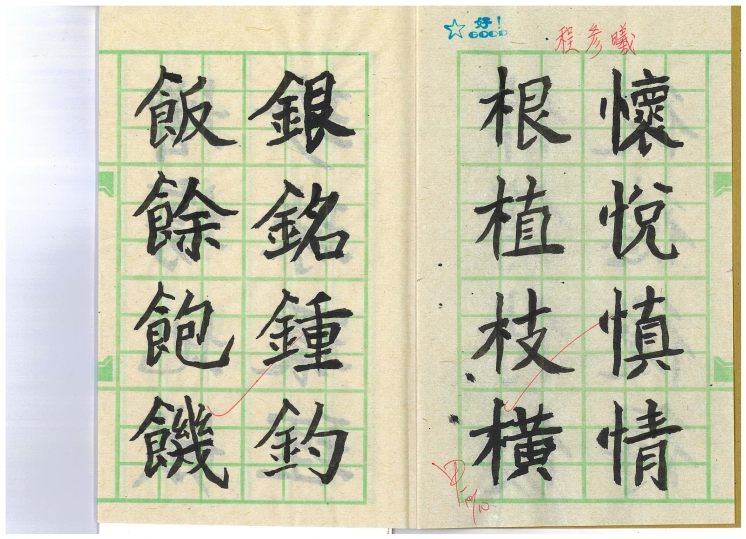 好！
GOOD
程彥曦
懷悅慎情
根植枝橫
銀銘鍾釣
飯餘飽饑